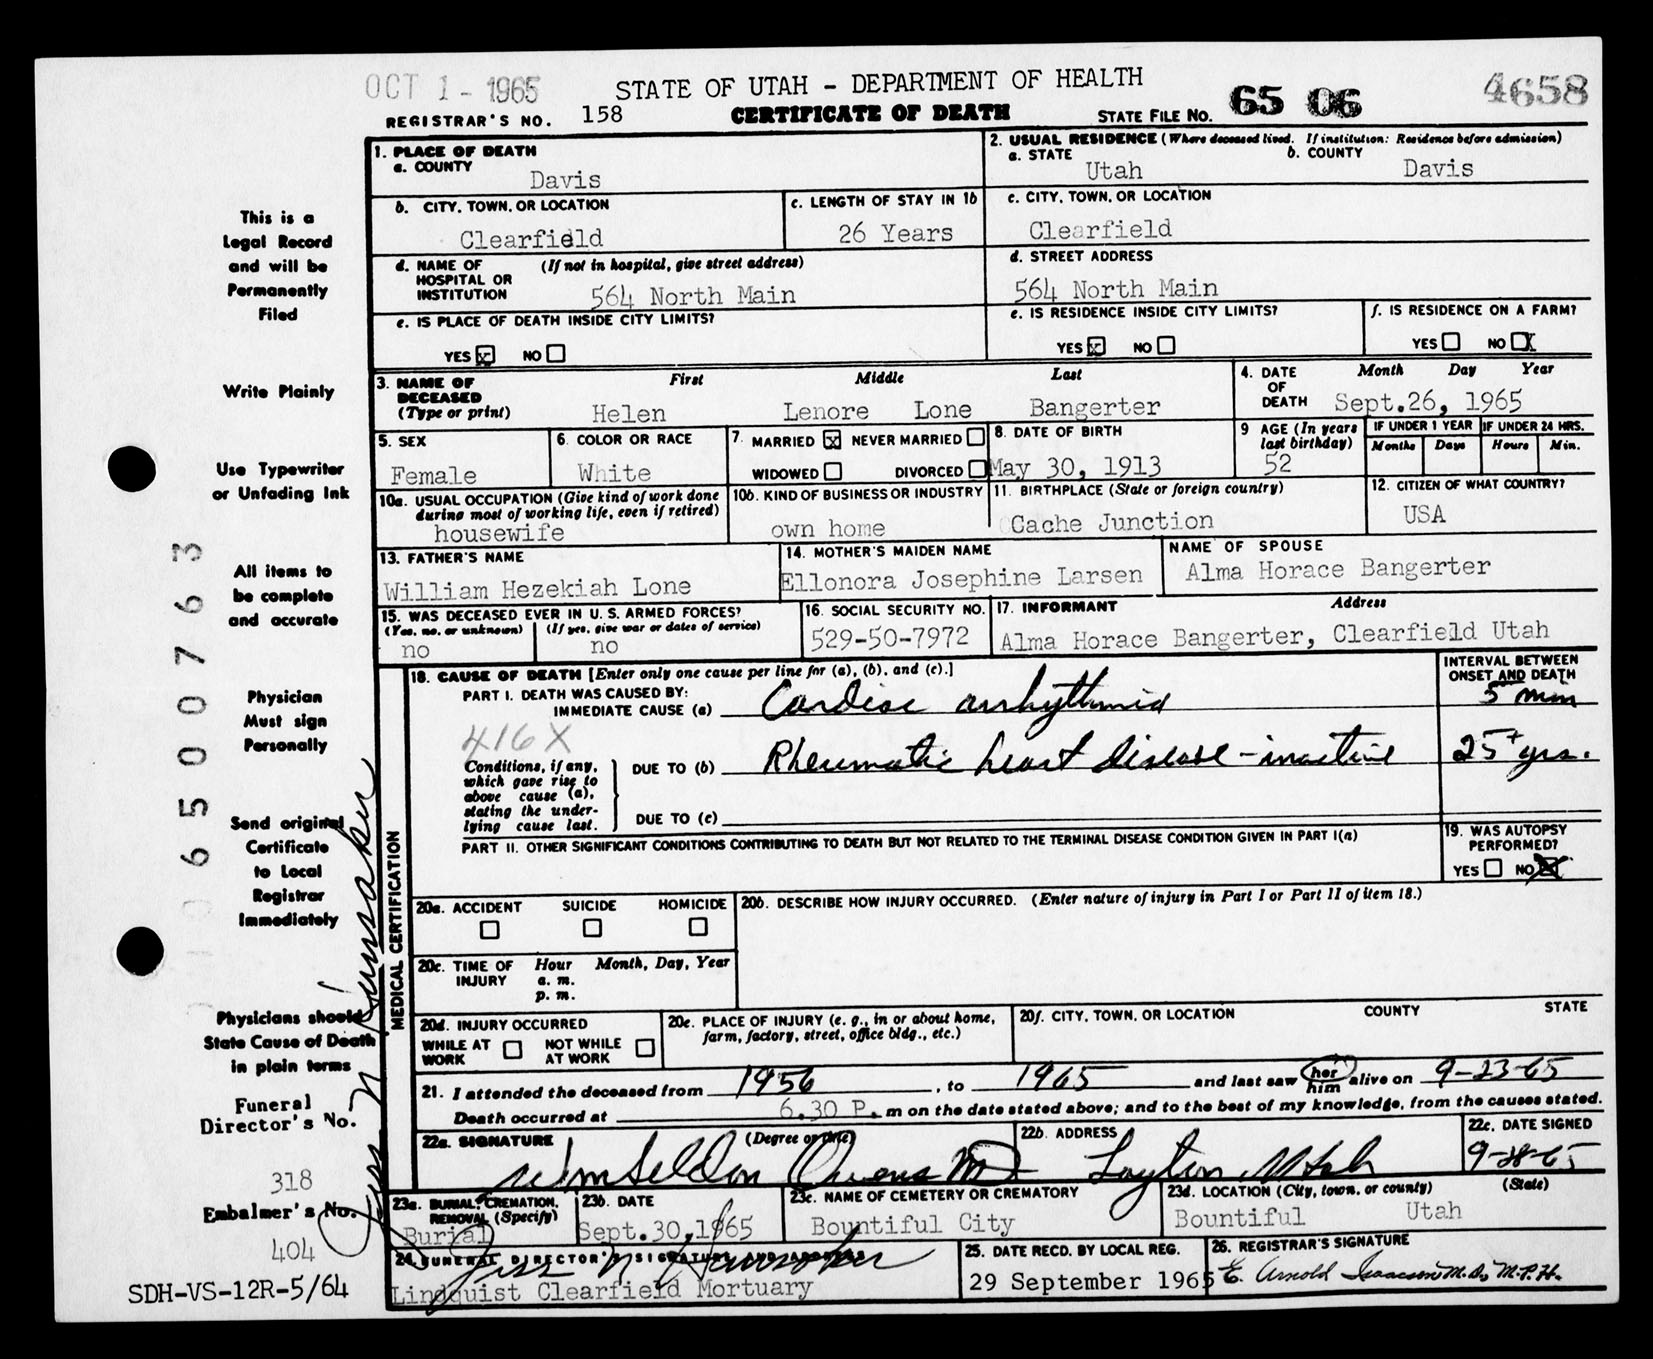 OCT 1 - 1965
STATE OF UTAH - DEPARTMENT OF HEALTH
4658
REGISTRAR'S NO. 158
CERTIFICATE OF DEATH
STATE FILE NO. 65 06
1. PLACE OF DEATH
a. COUNTY
Davis
2. USUAL RESIDENCE (Where deceased lived. If institution: Residence before admission)
a. STATE
Utah
b. COUNTY
Davis
b. CITY, TOWN, OR LOCATION
Clearfield
c. LENGTH OF STAY IN 1b
26 Years
c. CITY, TOWN, OR LOCATION
Clearfield
d. NAME OF HOSPITAL OR INSTITUTION
(If not in hospital, give street address)
564 North Main
d. STREET ADDRESS
564 North Main
e. IS PLACE OF DEATH INSIDE CITY LIMITS?
YES x NO
e. IS RESIDENCE INSIDE CITY LIMITS?
YES x NO
f. IS RESIDENCE ON A FARM?
YES NO X
3. NAME OF DECEASED
(Type or print)
First Middle Last
Helen Lenore Lone Bangerter
4. DATE OF DEATH
Month Day Year
Sept.26, 1965
5. SEX
Female
6. COLOR OR RACE
White
7. MARRIED x NEVER MARRIED
WIDOWED DIVORCED
8. DATE OF BIRTH
May 30, 1913
9 AGE (In years last birthday)
52
IF UNDER 1 YEAR
Months Days
IF UNDER 24 HRS.
Hours Min.
10a. USUAL OCCUPATION (Give kind of work done during most of working life, even if retired)
housewife
10b. KIND OF BUSINESS OR INDUSTRY
own home
11. BIRTHPLACE (State or foreign country)
Cache Junction
12. CITIZEN OF WHAT COUNTRY?
USA
13. FATHER'S NAME
William Hezekiah Lone
14. MOTHER'S MAIDEN NAME
Ellonora Josephine Larsen
NAME OF SPOUSE
Alma Horace Bangerter
15. WAS DECEASED EVER IN U. S. ARMED FORCES?
(Yes, no, or unknown) (If yes, give war or dates of service)
no no
16. SOCIAL SECURITY NO.
529-50-7972
17. INFORMANT Address
Alma Horace Bangerter, Clearfield Utah
18. CAUSE OF DEATH [Enter only one cause per line for (a), (b), and (c).]
PART I. DEATH WAS CAUSED BY:
IMMEDIATE CAUSE (a) Cardiac arrhythmia
INTERVAL BETWEEN ONSET AND DEATH
5 min
416X
Conditions, if any, which gave rise to above cause (a), stating the underlying cause last.
DUE TO (b) Rheumatic heart disease - inactive
25+ yrs.
DUE TO (c)
PART II. OTHER SIGNIFICANT CONDITIONS CONTRIBUTING TO DEATH BUT NOT RELATED TO THE TERMINAL DISEASE CONDITION GIVEN IN PART I(a)
19. WAS AUTOPSY PERFORMED?
YES NO X
20a. ACCIDENT SUICIDE HOMICIDE
20b. DESCRIBE HOW INJURY OCCURRED. (Enter nature of injury in Part I or Part II of item 18.)
20c. TIME OF INJURY
Hour Month, Day, Year
a. m.
p. m.
20d. INJURY OCCURRED
WHILE AT WORK NOT WHILE AT WORK
20e. PLACE OF INJURY (e. g., in or about home, farm, factory, street, office bldg., etc.)
20f. CITY, TOWN, OR LOCATION COUNTY STATE
21. I attended the deceased from 1956, to 1965 and last saw her him alive on 9-23-65
Death occurred at 6.30 P. m on the date stated above; and to the best of my knowledge, from the causes stated.
22a. SIGNATURE (Degree or title)
Wm Seldon Owens MD
22b. ADDRESS
Layton, Utah
22c. DATE SIGNED
9-28-65
23a. BURIAL, CREMATION, REMOVAL (Specify)
Burial
23b. DATE
Sept.30,1965
23c. NAME OF CEMETERY OR CREMATORY
Bountiful City
23d. LOCATION (City, town, or county) (State)
Bountiful Utah
24. FUNERAL DIRECTOR'S SIGNATURE AND ADDRESS
Jess N Hunsaker
Lindquist Clearfield Mortuary
25. DATE RECD. BY LOCAL REG.
29 September 1965
26. REGISTRAR'S SIGNATURE
E. Arnold Isaacson M.D., M.P.H.
This is a
Legal Record
and will be
Permanently
Filed
Write Plainly
Use Typewriter
or Unfading Ink
All items to
be complete
and accurate
Physician
Must sign
Personally
Send original
Certificate
to Local
Registrar
Immediately
Physicians should
State Cause of Death
in plain terms
Funeral
Director's No.
318
Embalmer's No.
404
SDH-VS-12R-5/64
MEDICAL CERTIFICATION
Jess N Hunsaker
06500763